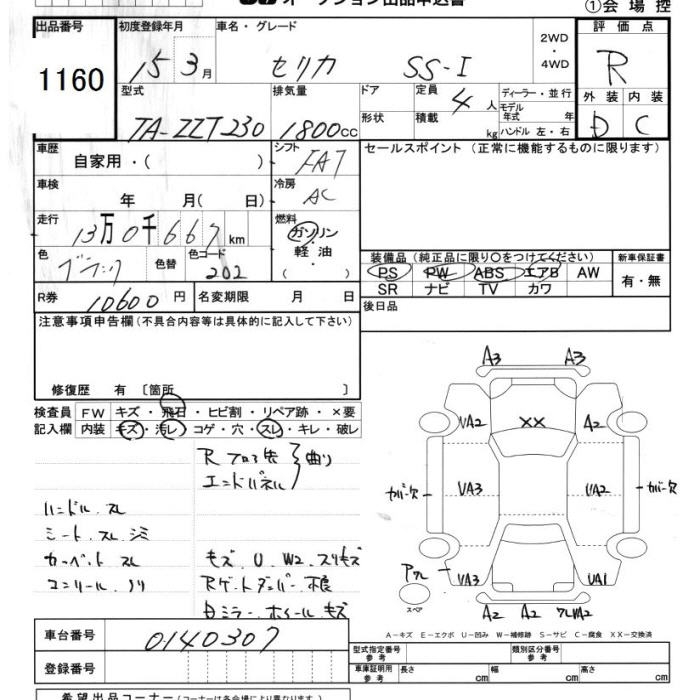 オークション出品申込書 ①会場控
出品番号 初度登録年月 車名・グレード 2WD ・ 4WD 評価点
1160 15 3月 セリカ SS-I R
型式 排気量 ドア 定員 4人 ディーラー・並行 外装 内装
TA-ZZT230 1800cc 形状 積載 kg モデル年式 年 ハンドル 左・右 D C
車歴 自家用・( ) シフト FAT セールスポイント (正常に機能するものに限ります)
車検 年 月( 日) 冷房 AC
走行 13万0千667km 燃料 ガソリン
軽油
・( )
色 ブラック 色替 色コード 202
装備品 (純正品に限り〇をつけてください) 新車保証書
PS PW ABS エアB AW 有・無
SR ナビ TV カワ
R券 10600円 名変期限 月 日 後日品
注意事項申告欄 (不具合内容等は具体的に記入して下さい)
修復歴 有 〔箇所 〕
検査員 FW キズ・飛石・ヒビ割・リペア跡・×要
記入欄 内装 キズ・汚レ・コゲ・穴・スレ・キレ・破レ
エンドパネル 曲り
ハンドル、スレ
シート、スレ
カーペット スレ
キズ、U、W2、スリキズ
ミラー、ホイール キズ
A3 A3
UA2 XX A2
カバー欠 UA3 UA2 カバー欠
UA3 UA1
スペア
A2 A2
A-キズ E-エクボ U-凹み W-補修跡 S-サビ C-腐食 XX-交換済
車台番号 0140307
登録番号
型式指定番号 参考 類別区分番号 参考
車庫証明用 参考 長さ cm 幅 cm 高さ cm
希望出品コーナー (コーナーは各会場により異なります。)